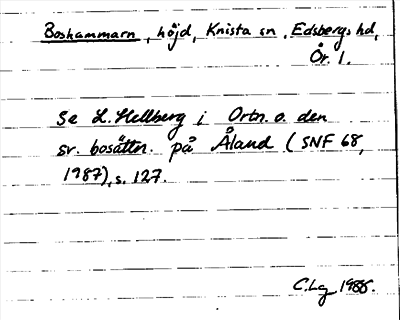 Boshammarn, höjd, Knista sn, Edsbergs hd,
Ör. l.
Se L. Hellberg i Ortn. o. den
sv. bosättn. på Åland (SNF 68,
1987), s. 127.
C. Lg 1988.